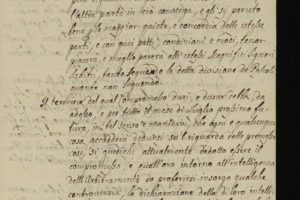 l'altra parte in ciò consenga, e gli sia paruto
bene p la maggior quiete, e concordia delle istesse
parti, e con quei patti, condizioni, e modi, tenor
piacerà, e meglio parerà all'istessi Magnifici Signori
Arbitri, tanto seguendo la detta divisione de Pascoli
quanto non seguendo.
Il termine del qual compromesso duri, e durar debba, da
adesso, e per tutto il mese di Luglio prossimo fu-
turo, in tal senso e maniera, che ogni e qualunque
cosa, accaderà dedursi su'l riguardo delle premesse
cose, si giudichi attualmente dedotto esser il
compromesso, e qual'ora intorno all'intelligenza
dell'Arbitramento da proferirsi insorga qualche
controversia, la dichiarazione della di loro intelli